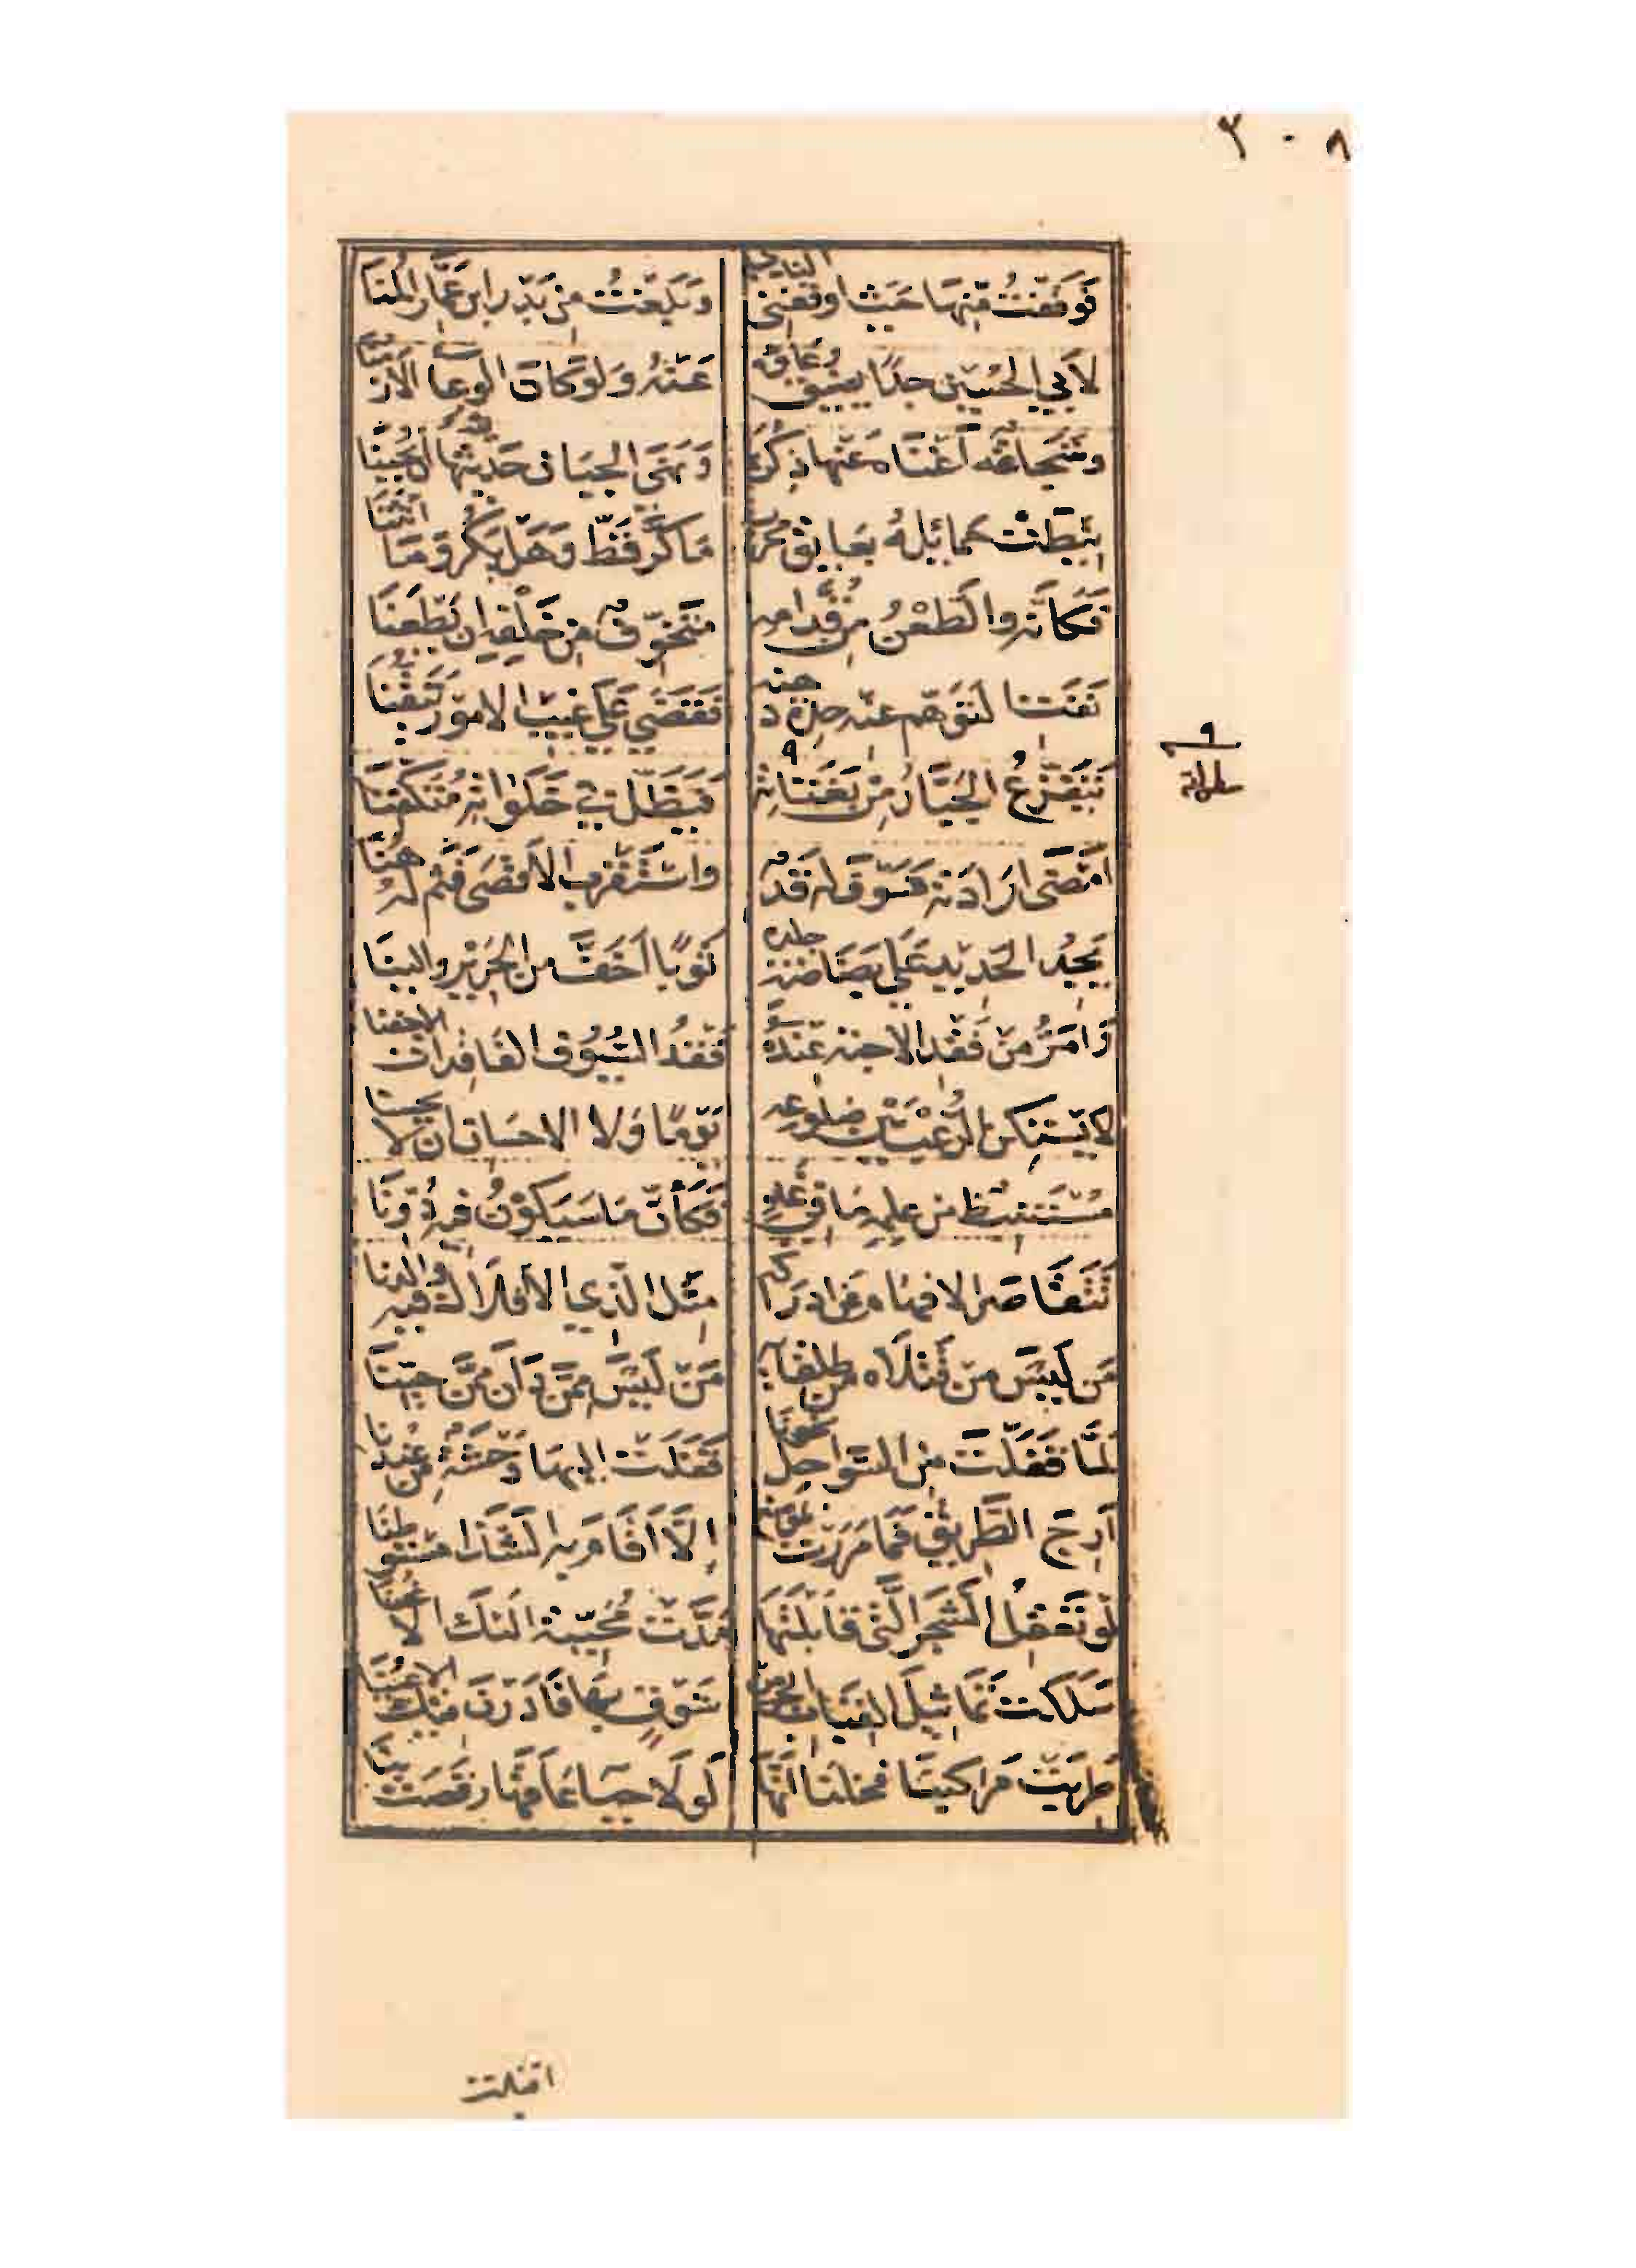 ٢٠٨
فوقفت منها حيث اوقفني الندي وبلغت من بدر ابن عمار المنا
لابي الحسين جدًا يضيق وعاؤه عنه ولو كان الوعا الازمنا
وشجاعة اغناه عنها ذكرها ونهى الجبان حديثها ان يجبنا
نيطت حمائله بعاتق محرب ما كر قط وهل يكر وما انثنا
فكانه والطعن من قدامه متخوف من خلفه ان يطعنا
نفت التوهم عنه حدة ذهنه فقضي علي غيب الامور تيقنا
يتفزع الجبار من بغتاته فيظل في خلواته متكفنا
٩
امضى ارادته فسوف له قد واستقرب الاقصى فثم له هنا
يجد الحديد علي بضاضة جلده ثوبًا اخف من الحرير والينا
وامر من فقد الاحبة عنده فقد السيوف الفاقدات الاجفنا
لا يستكن الرعب بين ضلوعه يومًا ولا الاحسان ان لا يحسنا
مستنبط من علمه ما في غد فكأن ما سيكون فيه دونا
تتقاصر الافهام عن ادراكه مثل الذي الافلاك فيه والدنا
من ليس من قتلاه من طلقائه من ليس ممن دان ممن حينا
لما قفلت من السواحل نحونا قفلت اليها وحشة من عندنا
ارج الطريق فما مررت بموضع الا اقام به الشذا مستوطنا
لو تعقل الشجر التي قابلتها مدت محيية اليك الاغصنا
سلكت تماثيل القباب الجن من شوق بها فادرن فيك الاعينا
طربت مراكبنا فخلنا انها لولا حياء عاقها رقصت بنا
اقبلت